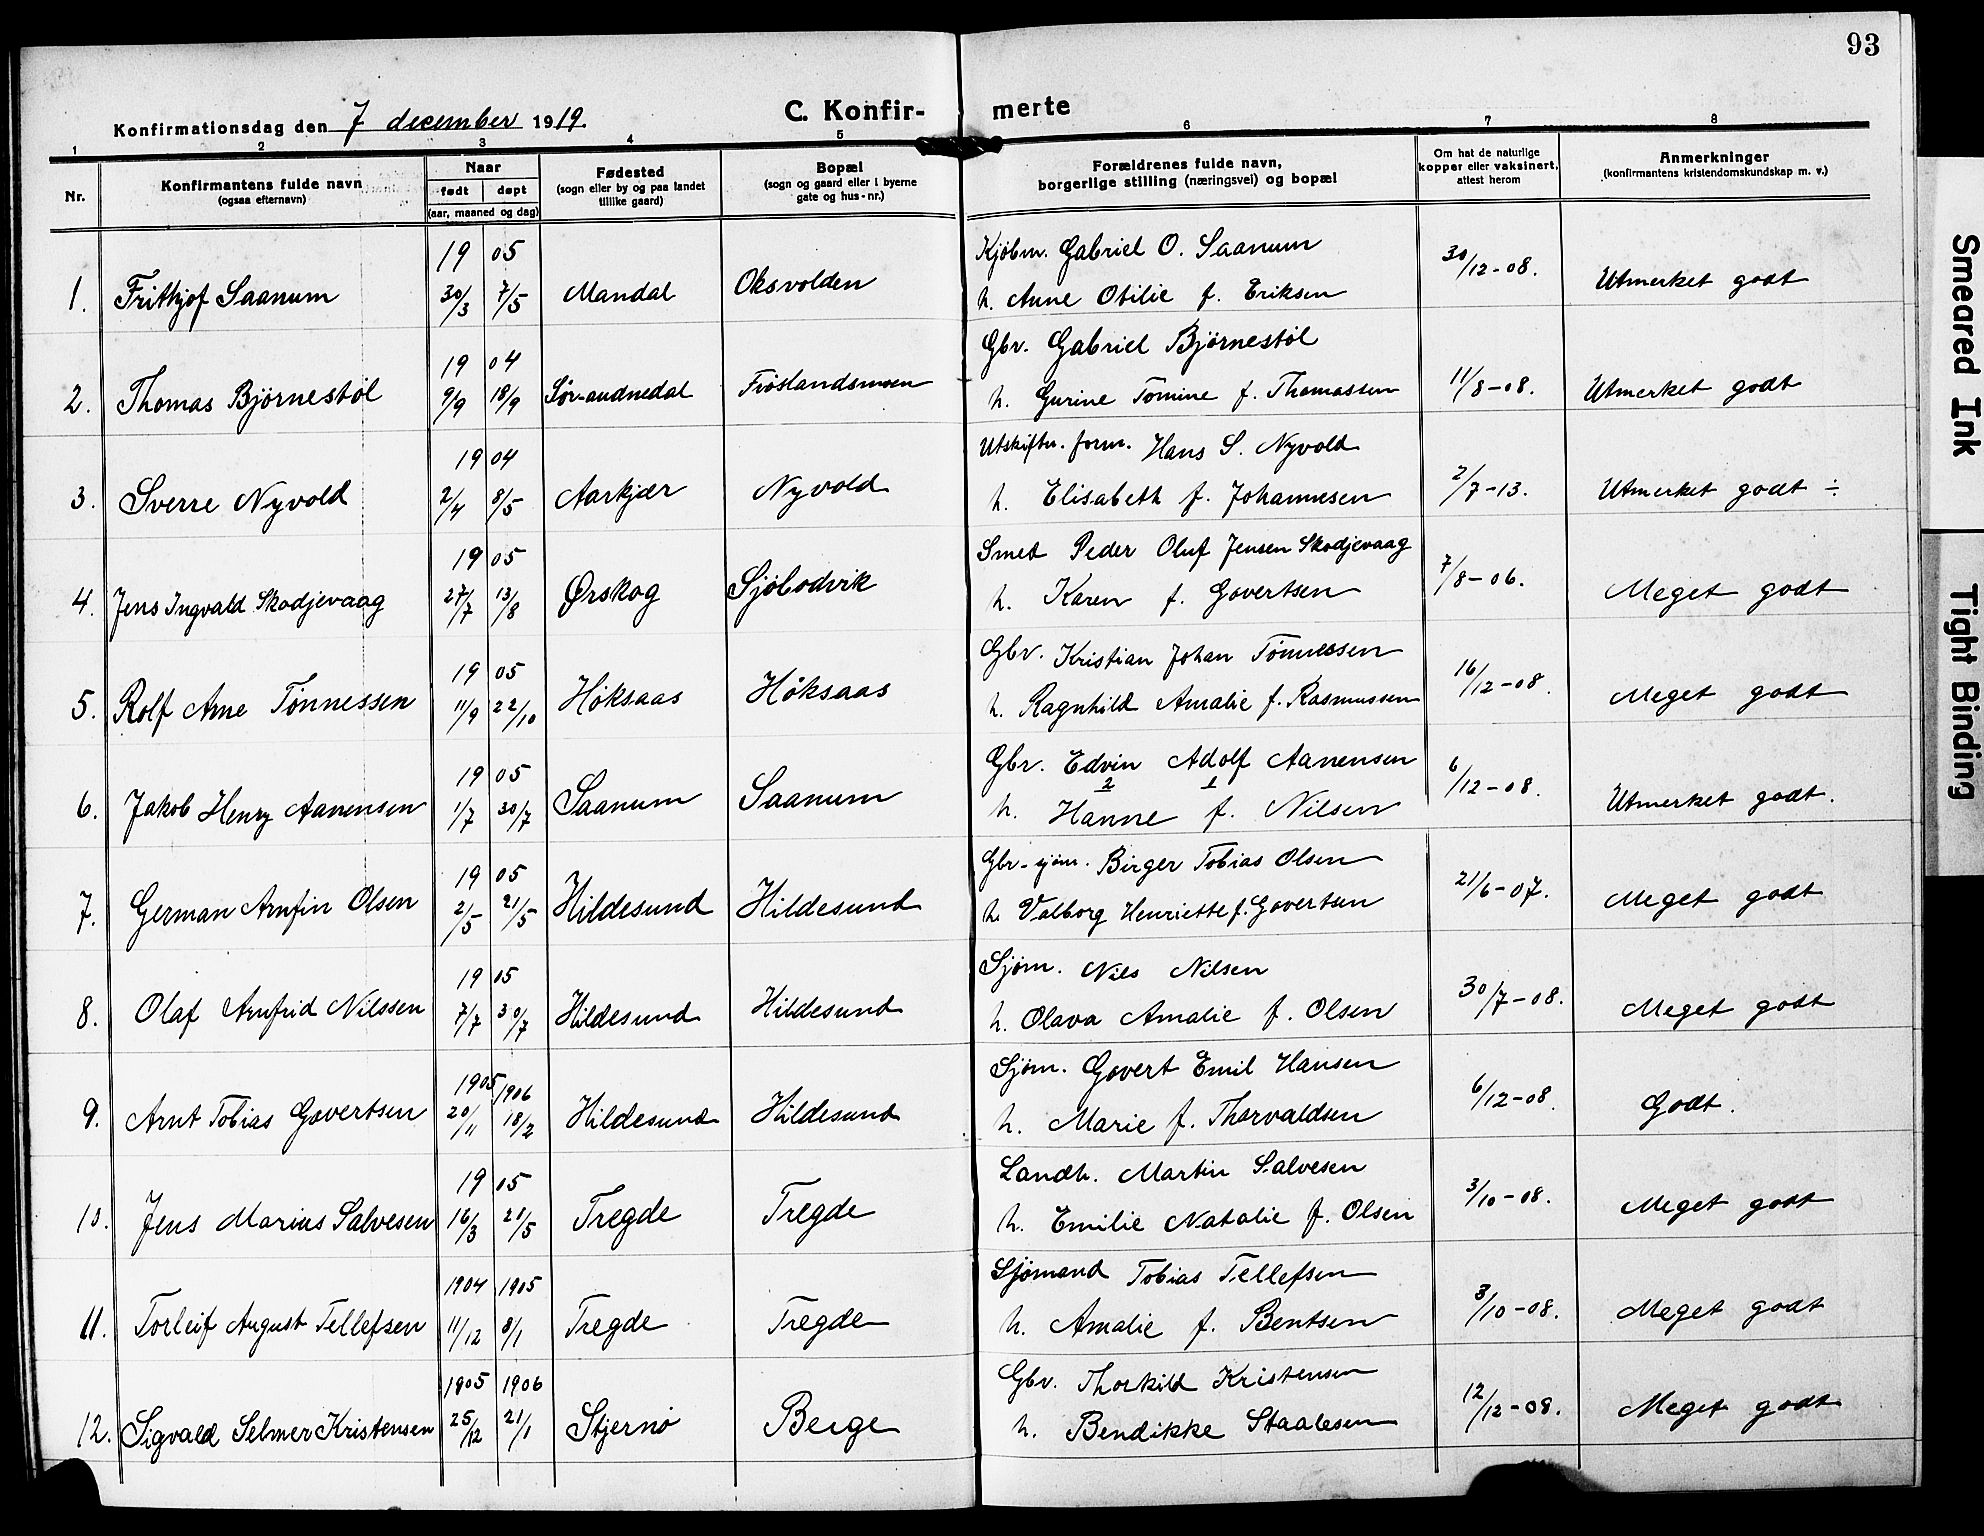 93
Konfirmationsdag den 7 december 1919.
C. Konfir- merte
1 2 3 4 5 6 7 8
Nr.
Konfirmantens fulde navn
(ogsaa efternavn)
Naar
født døpt
(aar, maaned og dag)
Fødested
(sogn eller by og paa landet
tillike gaard)
Bopæl
(sogn og gaard eller i byerne
gate og hus-nr.)
Forældrenes fulde navn,
borgerlige stilling (næringsvei) og bopæl
Om hat de naturlige
kopper eller vaksinert,
attest herom
Anmerkninger
(konfirmantens kristendomskundskap m. v.)
19 05 Kjøbm. Gabriel O. Saanum
1. Frithjof Saanum 30/3 7/5 Mandal Oksvolden h. Anne Otilie f. Eriksen 30/12-08. Utmerket godt
19 04 Gbr. Gabriel Bjørnestøl
2. Thomas Bjørnestøl 9/9 18/9 Sør-audnedal h. Gurine Tomine f. Thomassen 11/8-08. Utmerket godt
19 04 Utskiftn. form. Hans S. Nyvold
3. Sverre Nyvold 2/4 8/5 Aarkjær Nyvold h. Elisabeth f. Johannesen 2/7-13. Utmerket godt ÷
19 05 Smed Peder Oluf Jensen Skodjevaag
4. Jens Ingvald Skodjevaag 27/7 13/8 Ørskog Sjøbodvik h. Karen f. Govertsen 7/8-06. Meget godt
19 05 Gbr. Kristian Johan Tønnessen
5. Rolf Arne Tønnessen 11/9 22/10 Høksaas Høksaas h. Ragnhild Amalie f. Rasmussen 16/12-08. Meget godt
19 05 Gbr. Edvin Adolf Aanensen
2 1
6. Jakob Henry Aanensen 1/7 30/7 Saanum Saanum h. Hanne f. Nilsen 6/12-08. Utmerket godt.
19 05 Gbr-sjøm. Birger Tobias Olsen
7. German Arnfin Olsen 2/5 21/5 Hildesund Hildesund h. Valborg Henriette f. Govertsen 21/6-07. Meget godt
19 05 Sjøm. Nils Nilsen
8. Olaf Arnfrid Nilssen 7/7 30/7 Hildesund Hildesund h. Olava Amalie f. Olsen 30/7-08. Meget godt
1905 1906 Sjøm. Govert Emil Hansen
9. Arnt Tobias Govertsen 20/11 18/2 Hildesund Hildesund h. Marie f. Thorvaldsen 6/12-08. Godt.
19 05 Landh. Martin Salvesen
10. Jens Marius Salvesen 16/3 21/5 Tregde Tregde h. Emilie Natalie f. Olsen 3/10-08. Meget godt
1904 1905 Sjømand Tobias Tellefsen
11. Torleif August Tellefsen 11/12 8/1 Tregde Tregde h. Amalie f. Bentsen 3/10-08. Meget godt
1905 1906 Gbr. Thorkild Kristensen
12. Sigvald Selmer Kristensen 25/12 21/1 Stjernø Berge h. Bendikke Staalesen 12/12-08. Meget godt
Smeared Ink
Tight Binding